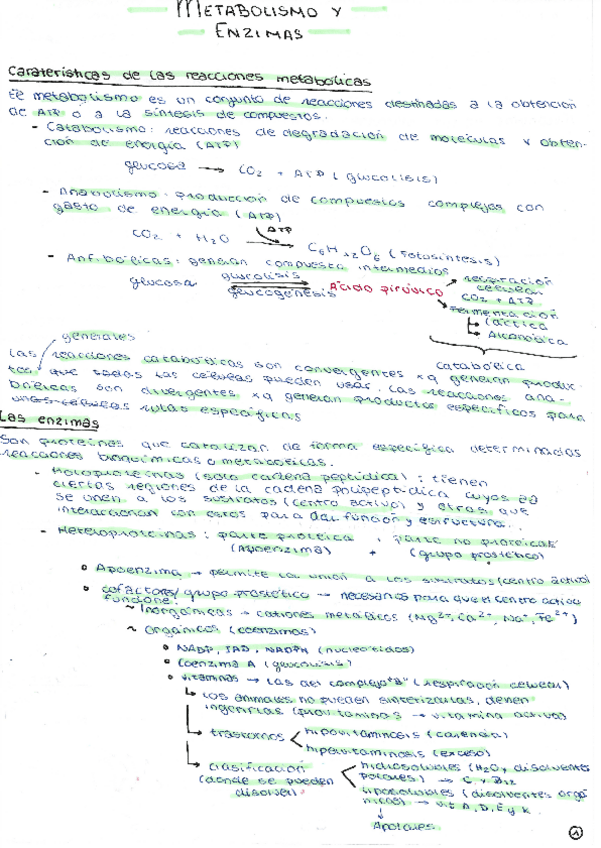 METABOLISMO Y
ENZIMAS
Caraterísticas de las reacciones metabólicas
El metabolismo es un conjunto de reacciones destinadas a la obtención
de ATP o a la síntesis de compuestos.
- Catabolismo: reacciones de degradación de moléculas y obten-
ción de energía (ATP)
glucosa → CO2 + ATP (glucolisis)
- Anabolismo: producción de compuestos complejos con
gasto de energía (ATP)
ATP
CO2 + H2O → C6H12O6 (Fotosíntesis)
- Anfibólicas: generan compuestos intermedios
glucosa glucolisis Ácido pirúvico respiración
glucogénesis celular
CO2 + ATP
Fermentación
Láctica
Alcohólica
generales
catabólica
Las reacciones catabólicas son convergentes xq generan produc-
tos que todas las células pueden usar. Las reacciones ana-
bólicas son divergentes xq generan productos específicos para
unas células específicas
Las enzimas
Son proteínas que catalizan de forma específica determinadas
reacciones bioquímicas o metabólicas.
- Holoproteínas (solo cadena peptídica): tienen
ciertas regiones de la cadena polipeptídica cuyos
se unen a los sustratos (centro activo) y otras que
interaccionan con estos para dar función y estructura.
- Heteroproteínas: parte proteica + parte no proteica
(Apoenzima) + (grupo prostético)
• Apoenzima → permite la unión a los sustratos (centro activo)
• cofactores/grupo prostético → necesarios para que el centro activo
funcione.
~ Inorgánicos → cationes metálicos (Mg2+, Ca2+, Na+, Fe2+)
~ Orgánicos (coenzimas)
• NADP, FAD, NADPH (nucleótidos)
• Coenzima A (glucolisis)
• vitaminas → las del complejo "B" (respiración celular)
↳ los animales no pueden sintetizarlas, deben
ingerirlas (provitaminas → vitamina activa)
↳ trastornos < hipovitaminosis (carencia)
hipervitaminosis (exceso)
↳ clasificación < hidrosolubles (H2O y disolventes
(donde se pueden polares) → C y B12
disolver) liposolubles (disolventes orgá
nicos) → vit A, D, E y K
Apolares
1